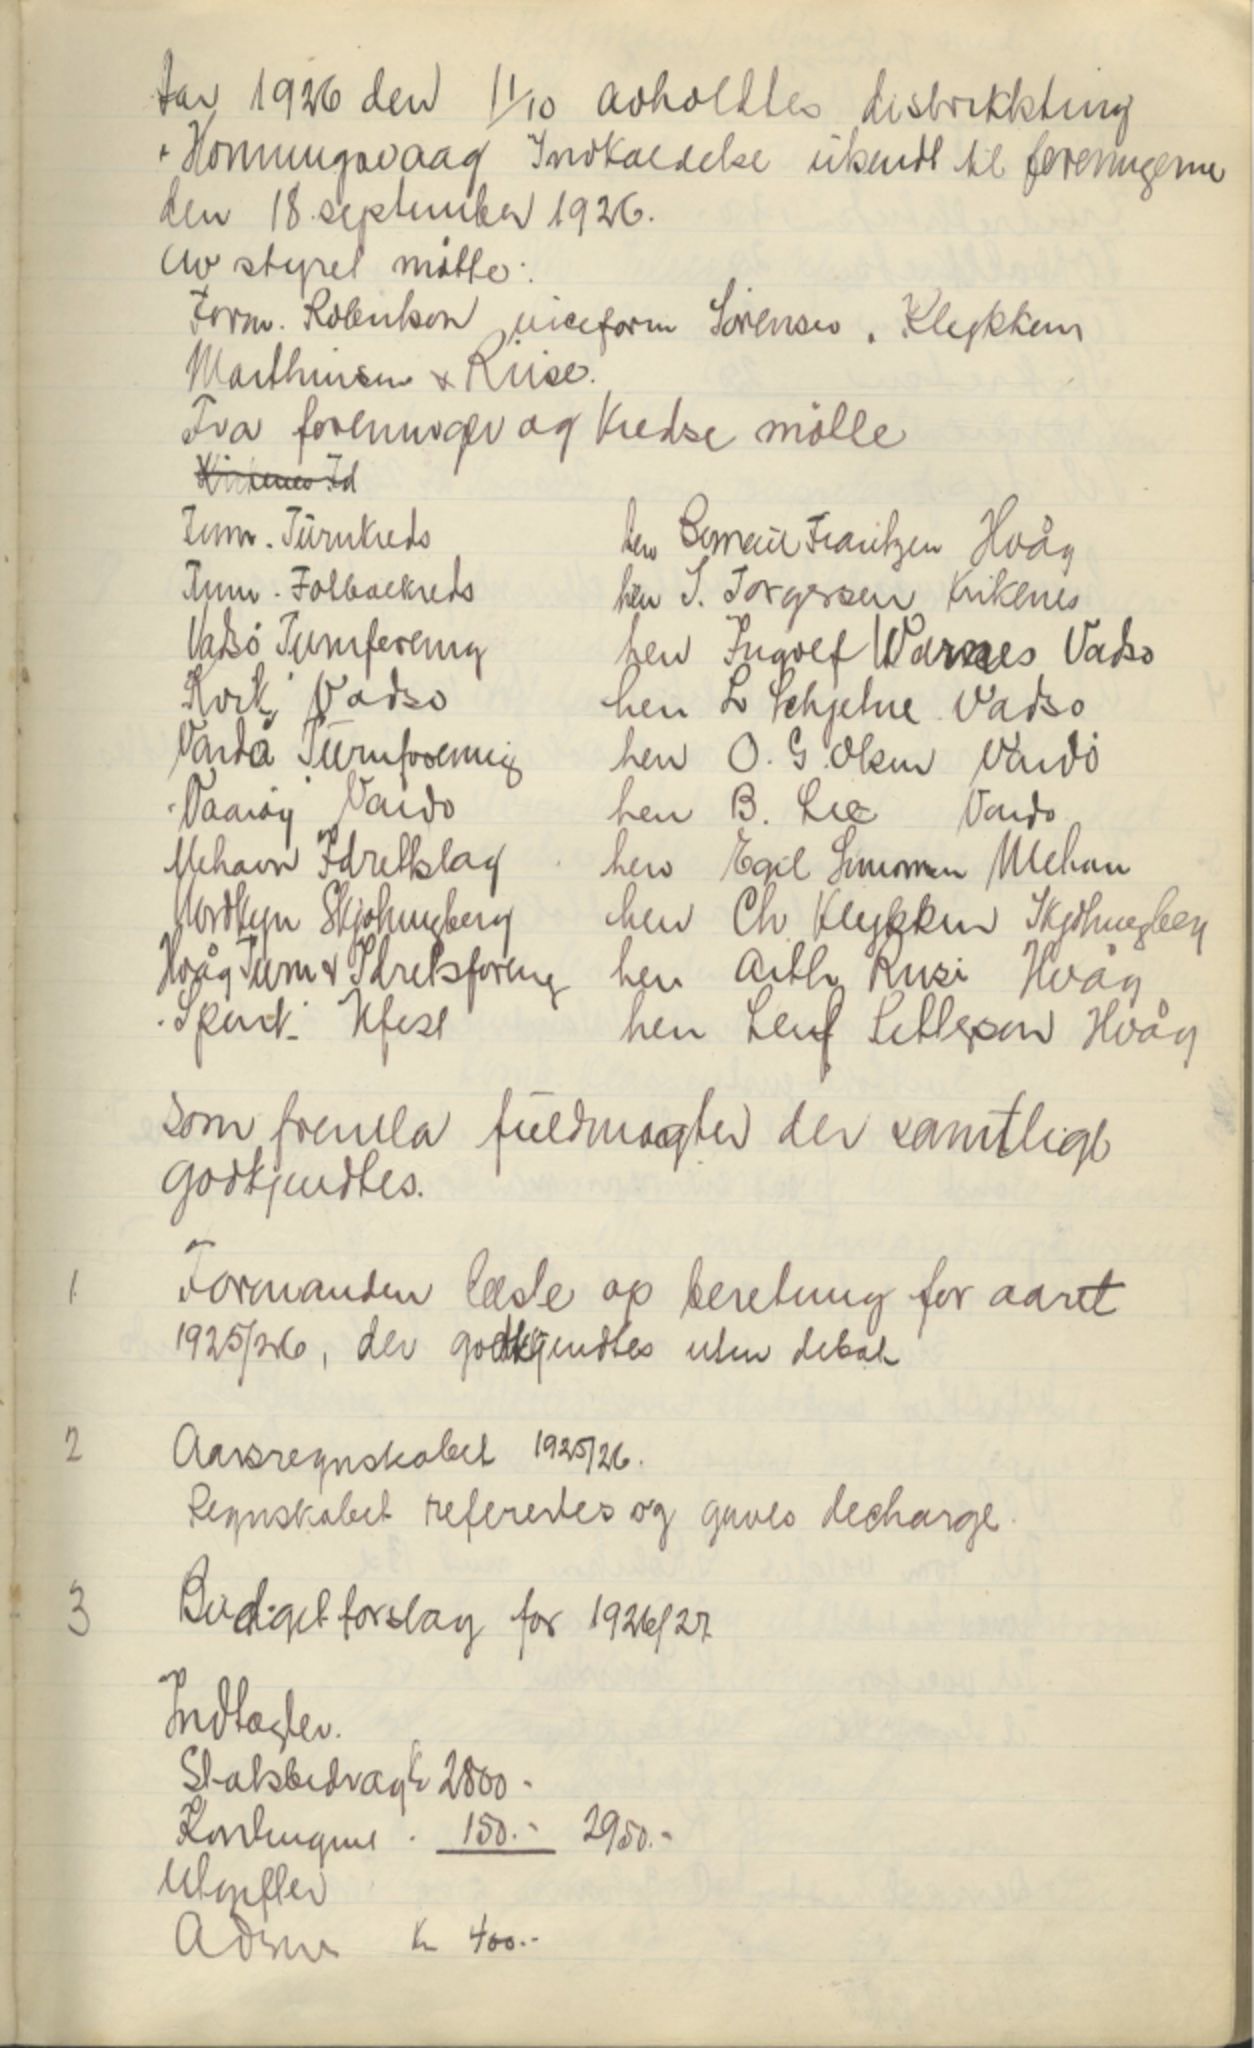 Aar 1926 den 11/10 avholdtes distriktsting
i Honningsvaag Indkaldelse utsendt til foreningerne
den 18 september 1926.
Av styret møtte:
Form. Robertson viceform Sørensen, Klykken
Marthinsen & Riise.
Fra foreninger og Kredse møtte
Kirkenes Id
Finm. Turnkreds herr Frantzen Hvåg
Finm. Fotballkreds herr S. Torgersen Kirkenes
Vadsø Turnforening herr Ingolf Warnes Vadsø
Kvik, Vadsø herr L Schjelne Vadsø
Vardø Turnforening herr O. G. Olsen Vardø
Vaarøg Vardø herr B. Lie Vardo
Mehavn Idrettslag herr Egil Simonsen Mehavn
Nordkyn Skjøtningberg herr Ch Klykken Skjøtningberg
Hvåg Turn & Idretsforening herr Arth Riise Hvåg
herr Leif Hvåg
som fremla fuldmagter der samtlige
godkjendtes.
1 Formanden læste op beretning for aaret
1925/26, der godkjendtes uten debat
2 Aarsregnskabet 1925/26.
Regnskabet refereredes og gaves decharge.
3 Budgetforslag for 1926/27
Indtægter.
Statsbidrag kr 2800.-
Kontingent 150.- 2950.-
Utgifter
Adm kr 400.-